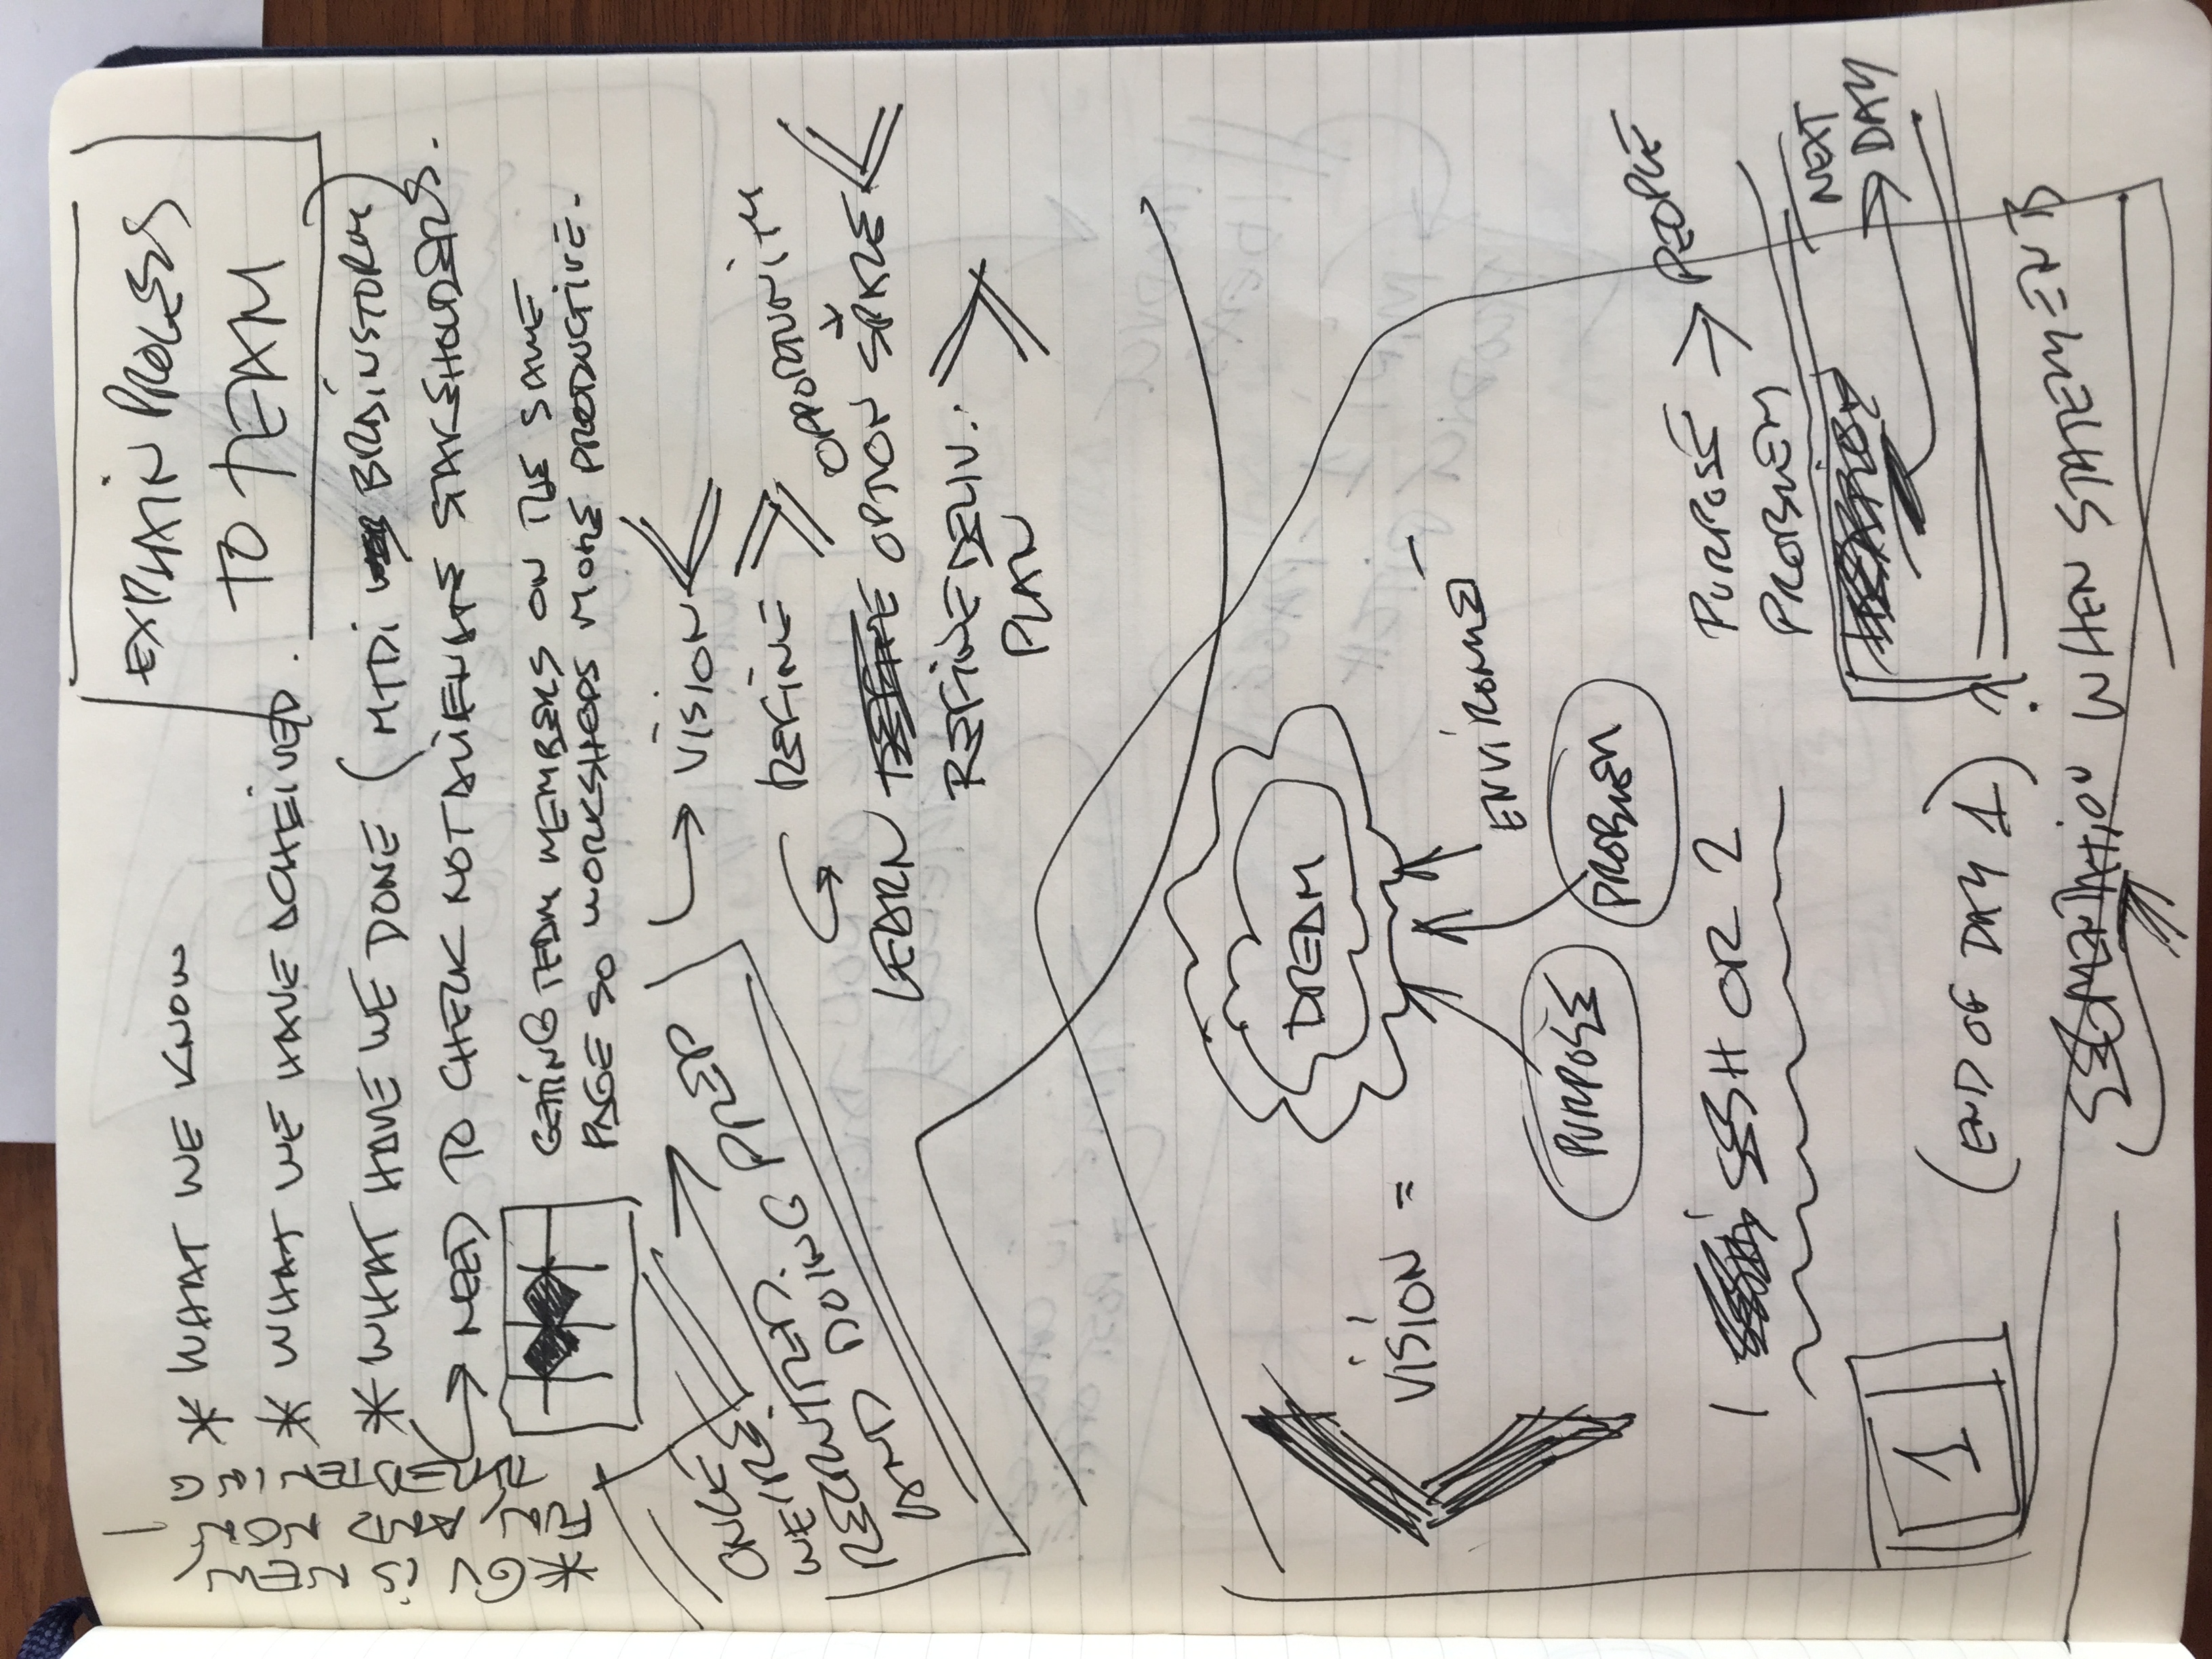 EXPLAIN PROCESS
TO TEAM
* GV IS NEW/
FUN/ AND NON/
THREATENING
* WHAT WE KNOW
* WHAT WE HAVE ACHEIVED.
* WHAT HAVE WE DONE (MTDi BRAINSTORM)
NEED TO CHECK NOT ALIENATE STAKEHOLDERS.
GETTING TEAM MEMBERS ON THE SAME
PAGE SO WORKSHOPS MORE PRODUCTIVE.
ONCE
WE'RE
RECRUITED.
AND DOING PREP
VISION
REFINE
OPPORTUNITY
LEARN OPTION SPACE
REFINE DELIV.
PLAN
DREAM
VISION =
ENVIRONME
PURPOSE
PROBLEM
1 SESH OR 2
PURPOSE → PEOPLE
PROBLEM
NEXT
DAY
1
(END OF DAY 1) ?
SEGMENTATION WHEN STATEMENTS